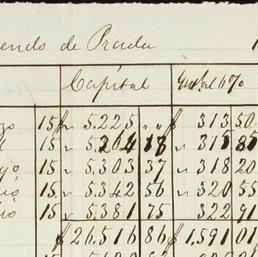 endo de Prada 1
Capital Int. al 6%
zo 15 $ 5.225 " " $ 313 50
l 15 " 5.264 18 " 315 85
yo 15 " 5.303 37 " 318 20
io 15 " 5.342 56 " 320 55
lio 15 " 5.381 75 " 322 91
$ 26.516 86 $ 1.591 01